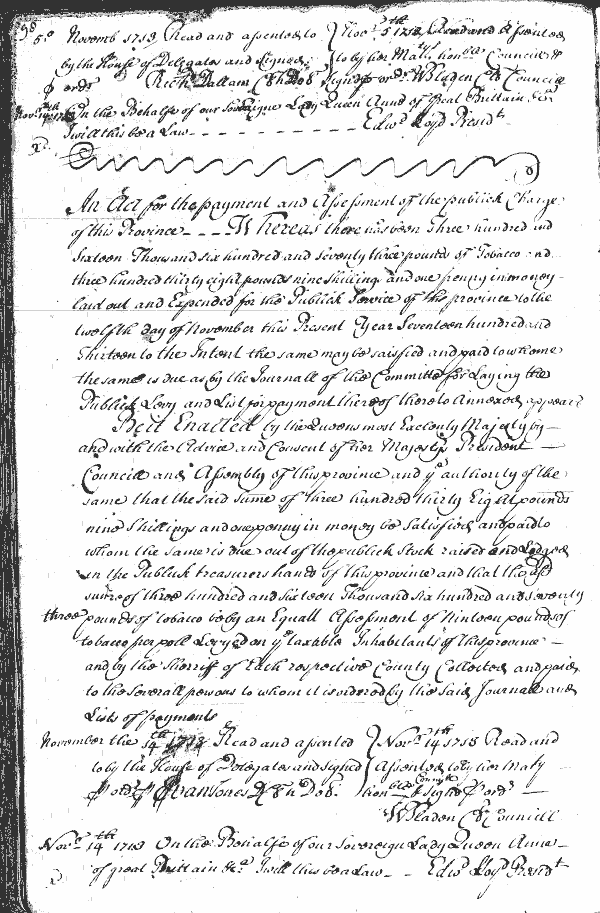 98
5o Novemb 1713 Read and assented to } Novr 5th 1713 Read and Assented
by the House of Delegates and Signed } to by her Matys honble Councill &
p ordr Richd Dallam Cl h Dos Signed p ordr WBladen Cl Councill
Novr 14th 1713 On the Behalfe of our Sovereigne Lady Queen Anne of Great Brittain &ca
I will this be a Law - - - - - - - - - - Edwd Lloyd Presidt
An Act for the payment and Assessment of the publick Charge
of this Province - - - - Whereas there has been three hundred and
Sixteen Thousand six hundred and seventy three pounds of Tobacco and
three hundred thirty eight pounds nine shillings and one penny in money
laid out and Expended for the Publick Service of this province to the
twelfth day of November this Present Year Seventeen hundred and
thirteen to the Intent the same may be satisfied and paid to whome
the same is due as by the Journall of the Committe for Laying the
Publick Levy and List for payment thereof thereto Annexed appears
Be it Enacted by the Queens most Excelenty Majesty by
and with the Advice and Consent of her Majestys President
Councill and Assembly of this province and ye authority of the
same that the said sume of three hundred thirty Eight pounds
nine Shillings and one penny in money be Satisfied and paid to
whom the same is due out of the publick Stock raised and Lodged
in the Publick treasurers hands of this province and that the sd
sume of three hundred and sixteen Thousand six hundred and seventy
three pounds of tobacco be by an Equall Assessment of Ninteen pounds of
tobacco per poll Levyed on ye taxable Inhabitants of this province
and by the Sherriff of Each respective County Collected and paid
to the severall persons to whom it is ordered by the said Journall and
Lists of payments
November the 14th 1713 Read and assented } Novr 14th 1713 Read and
to by the House of Delegates and signed } Assented to by her Maty
p ordr Evan Jones Cl h Dos. honble Councill & Signd p ordr
WBladen Cl Councill
Novr 14th 1713 On the Behalfe of our Sovereign Lady Queen Anne
of great Brittain &ca I will this be a Law - - Edwd Lloyd Presidt